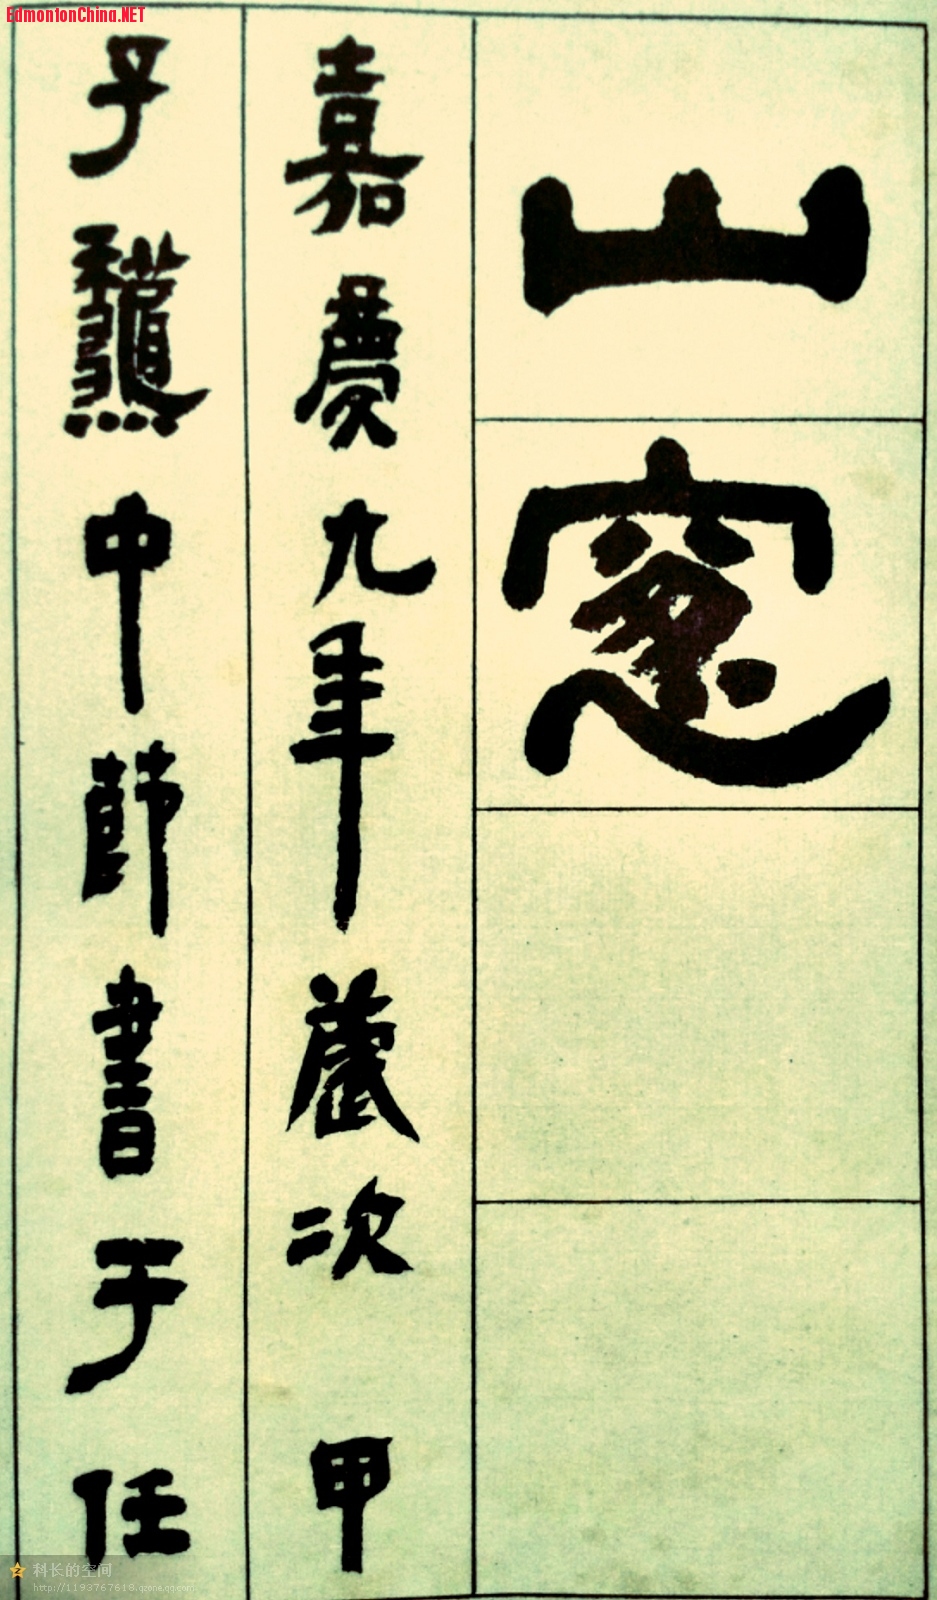 EdmontonChina.NET
山窓
嘉慶九年歲次甲
子龝中節書于任
科长的空间
http://1193767618.qzone.qq.com